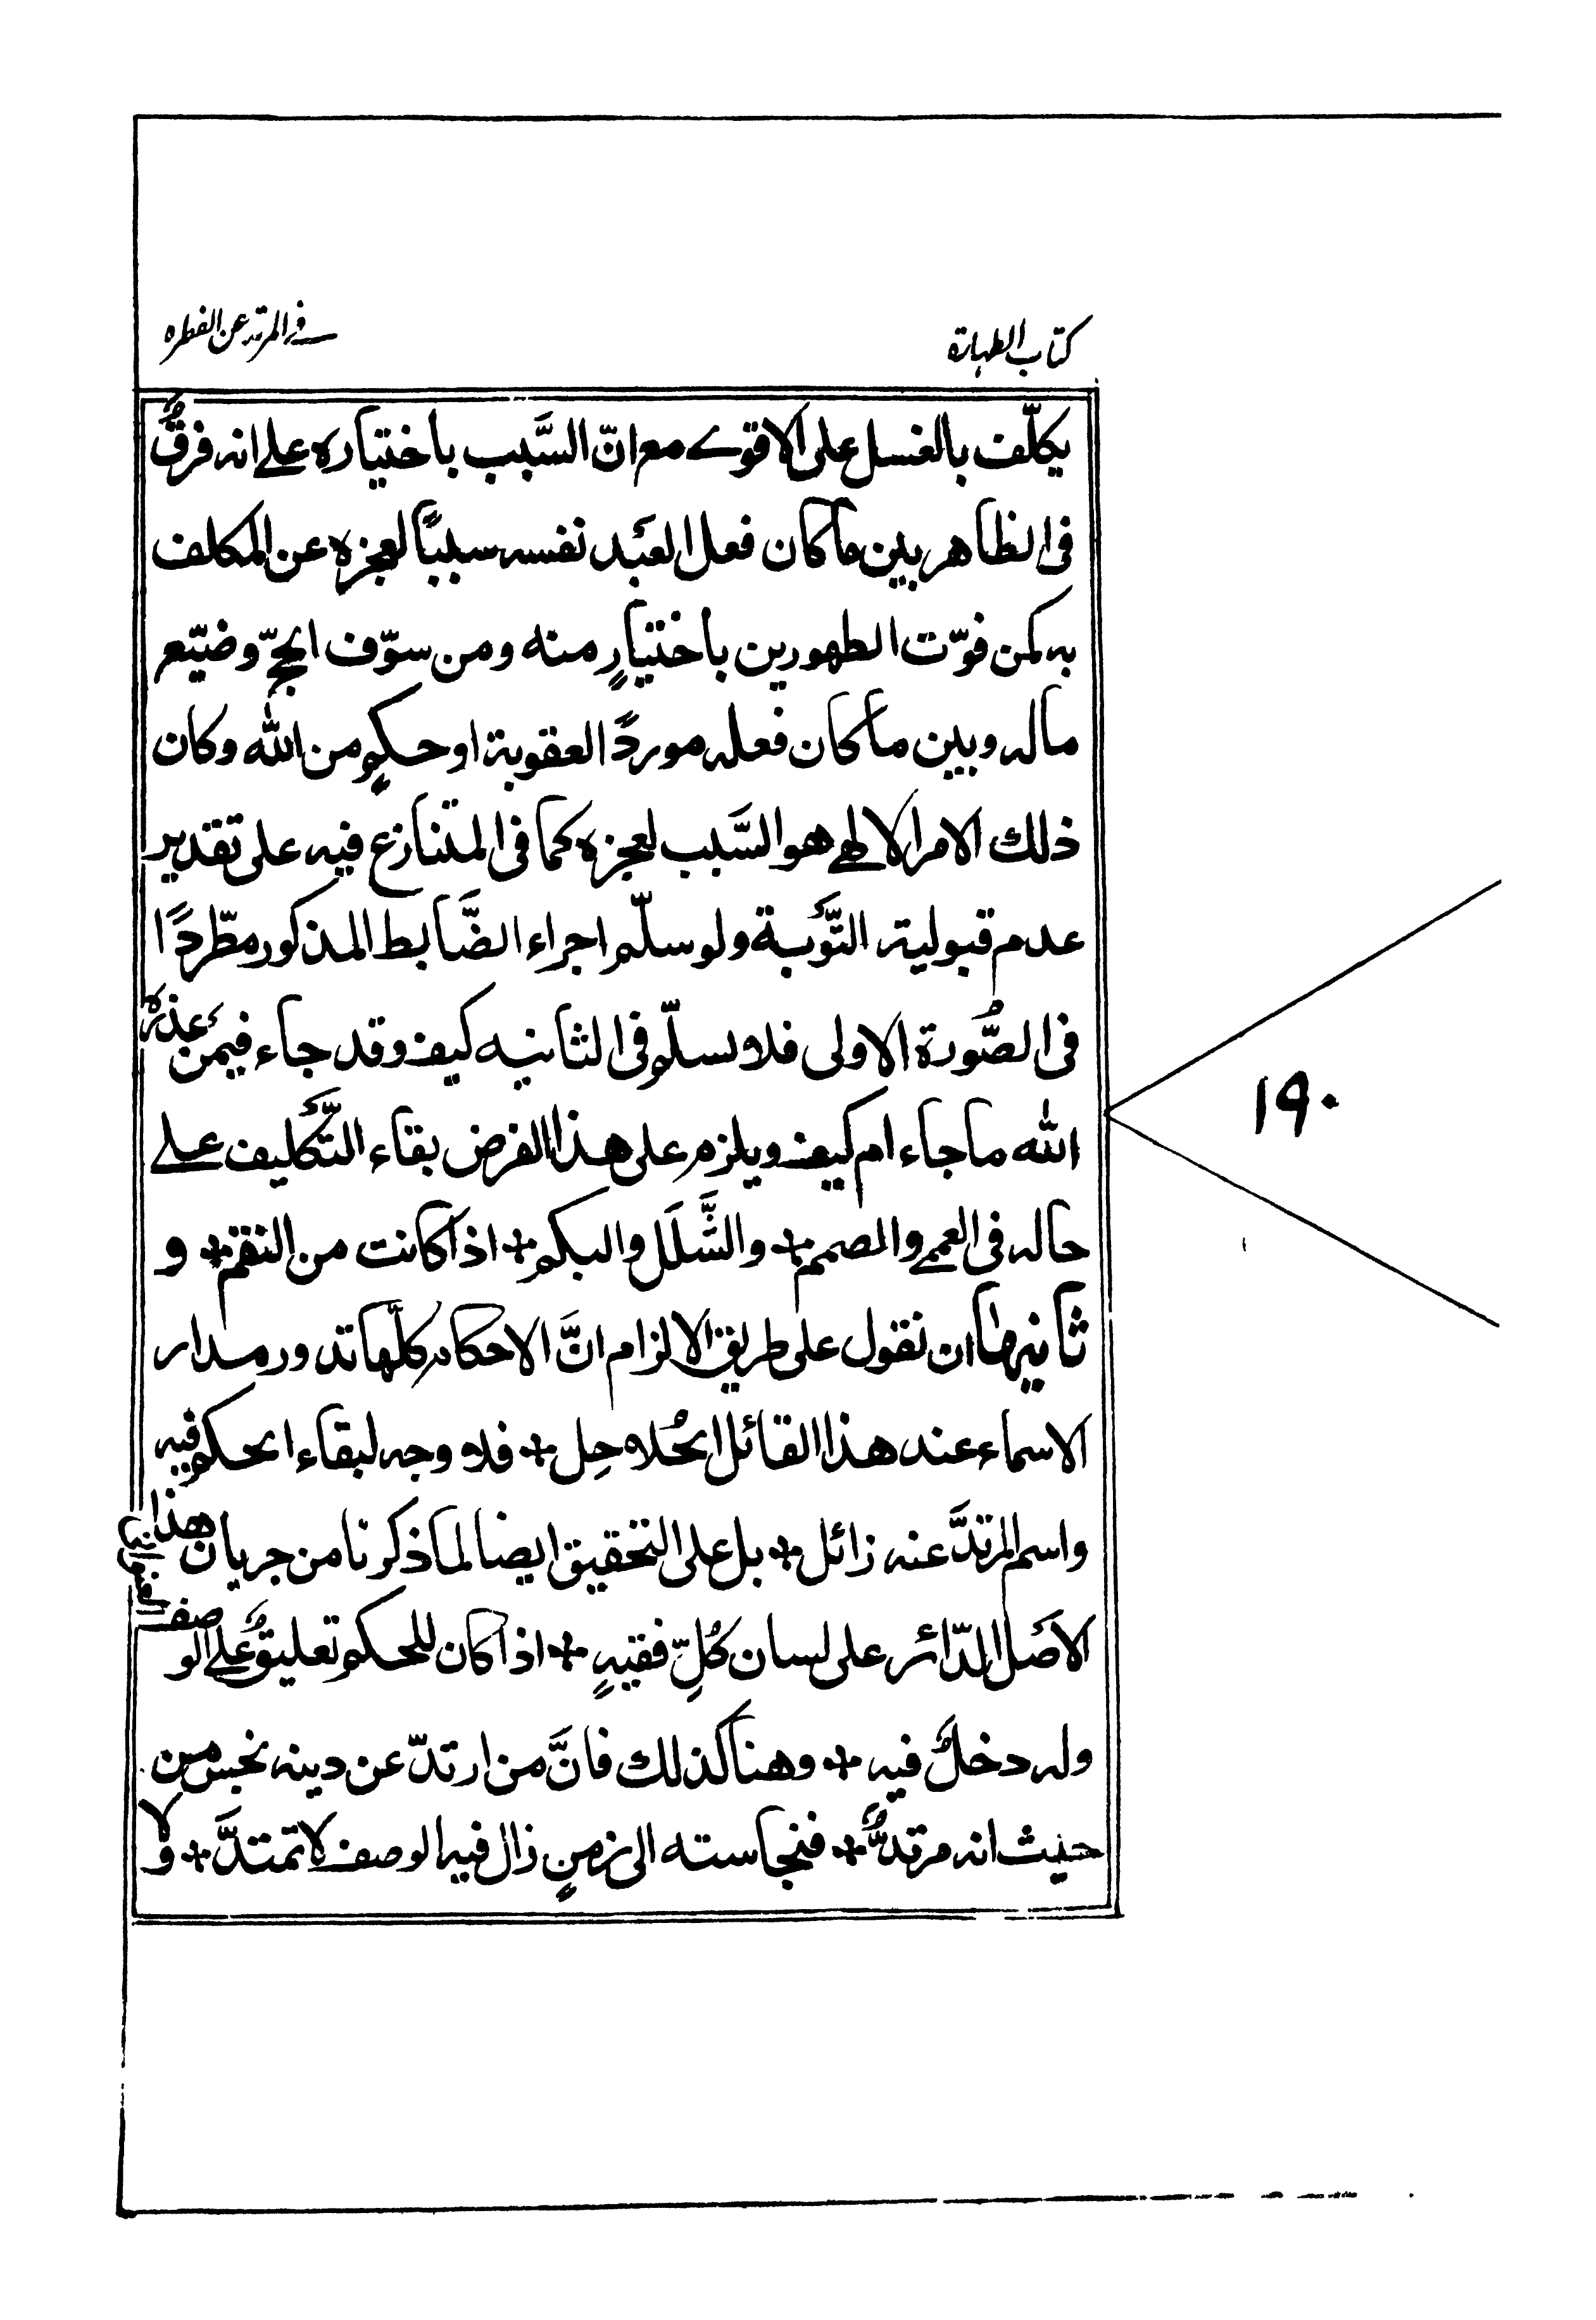 كتاب الطهارة
في المرتد عن الفطره
يكلّف بالغسل على الاقوے مع انّ السَّبب باختياره علے انه فرقٌ
فى الظاهر بين ما كان فعل العَبْد نفسه سببًا لعجزه عن المكلف
به كمن فوّت الطهورين باختيارٍ منه ومن سوّف الحجّ وضيّع
ماله وبين ما كان فعله موردًا لعقوبة او حكمٍ من الله وكان
ذلك الامر الالهے هو السَّبب لعجزه كما فى المتنازع فيه على تقدير
عدم قبولية التَّوْبة ولو سلّم اجراء الضَّابط المذكور مطّردًا
فى الصُّورة الاولى فلا يسلّم فى الثانيه كيف وقد جاء فيمن عذره
الله ما جاء ام كيف ويلزم على هذا الفرض بقاء التَّكليف علے
حاله فى العمے والصمم + والشَّلَل والبكم + اذا كانت من النقم + و
ثانيها ان نقول على طريق الالزام انَّ الاحكام كلّها تدور مدار
الاسماء عند هذا القائل الحُلاحِل + فلا وجه لبقاء الحكم فيه
واسم المرتدَّ عنه زائل + بل على التحقيق ايضا لما ذكرنا من جريان هذا
الاصَل الدّائر على لسان كُلِّ فقيهٍ + اذا كان للحكم تعليقٌ على الوصف
وله دخلٌ فيه + وهنا كذلك فانَّ من ارتدّ عن دينه نجس من
حيث انه مرتدٌّ + فنجاسته الى زمنٍ زال فيه الوصف لا تمتدَّ + ولا
١٩٠